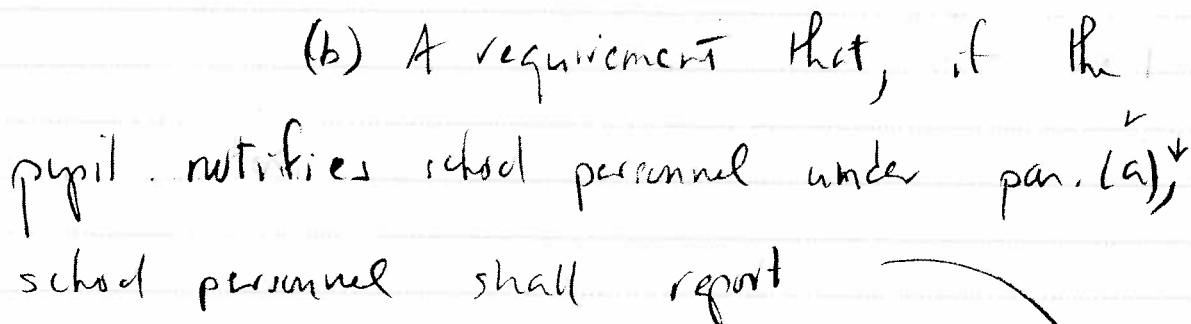 (b) A requirement that, if the
pupil notifies school personnel under par. (a),
school personnel shall report